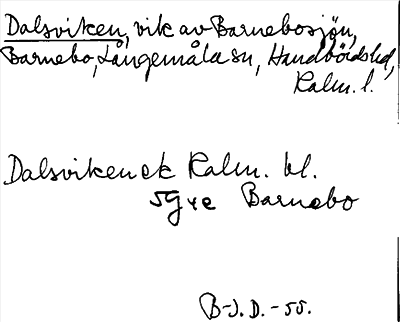 Dalsviken, vik av Barnebosjön,
Barnebo, Långemåla sn, Handbördshd,
Kalm. l.
Dalsviken ek Kalm. bl.
5G ve Barnebo
B-J. D. -55.